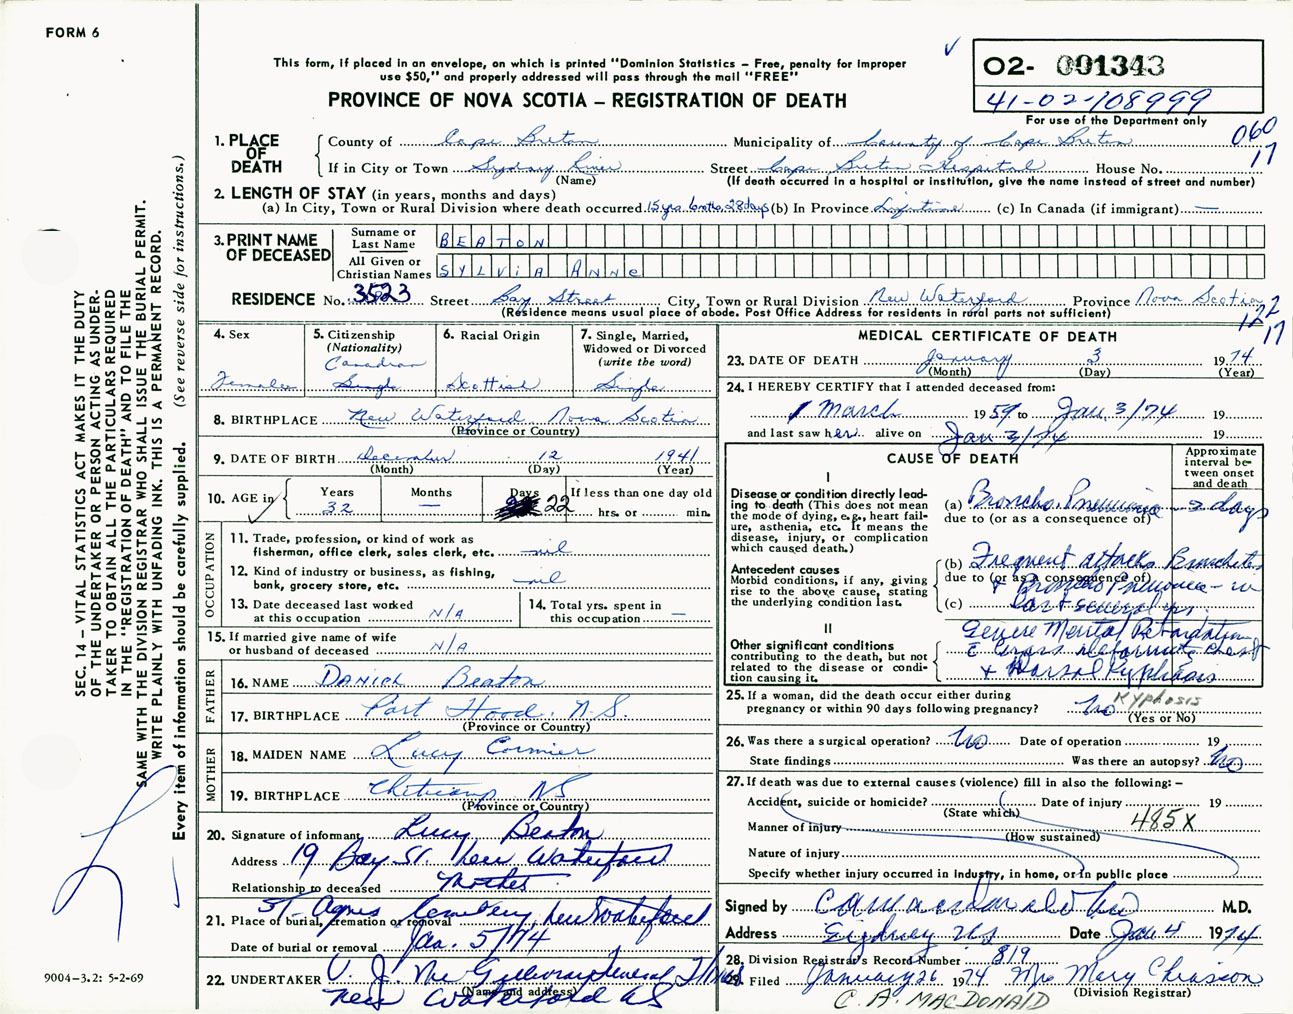 FORM 6
This form, if placed in an envelope, on which is printed "Dominion Statistics – Free, penalty for improper
use $50," and properly addressed will pass through the mail "FREE"
PROVINCE OF NOVA SCOTIA – REGISTRATION OF DEATH
02- 001343
41-02-108999
For use of the Department only
060
17
1. PLACE OF DEATH
County of Cape Breton Municipality of County of Cape Breton
If in City or Town Sydney River Street Cape Breton Hospital House No.
(Name) (If death occurred in a hospital or institution, give the name instead of street and number)
2. LENGTH OF STAY (in years, months and days)
(a) In City, Town or Rural Division where death occurred 15 yrs 28 days (b) In Province Lifetime (c) In Canada (if immigrant) —
3. PRINT NAME OF DECEASED
Surname or Last Name BEATON
All Given or Christian Names SYLVIA ANNE
RESIDENCE No. 3523 Street Bay Street City, Town or Rural Division New Waterford Province Nova Scotia
(Residence means usual place of abode. Post Office Address for residents in rural parts not sufficient)
122
17
4. Sex Female
5. Citizenship (Nationality) Canadian
6. Racial Origin Scottish
7. Single, Married, Widowed or Divorced (write the word) Single
8. BIRTHPLACE New Waterford Nova Scotia
(Province or Country)
9. DATE OF BIRTH December 12 1941
(Month) (Day) (Year)
10. AGE in Years 32 Months — Days 22 If less than one day old hrs. or min.
OCCUPATION
11. Trade, profession, or kind of work as
fisherman, office clerk, sales clerk, etc. nil
12. Kind of industry or business, as fishing,
bank, grocery store, etc. nil
13. Date deceased last worked
at this occupation N/A
14. Total yrs. spent in
this occupation —
15. If married give name of wife
or husband of deceased N/A
FATHER
16. NAME Daniel Beaton
17. BIRTHPLACE Port Hood, N.S.
(Province or Country)
MOTHER
18. MAIDEN NAME Lucy Cormier
19. BIRTHPLACE Cheticamp NS
(Province or Country)
20. Signature of informant Lucy Beaton
Address 19 Bay St. New Waterford
Relationship to deceased Mother
21. Place of burial, cremation or removal St. Agnes Cemetery, New Waterford
Date of burial or removal Jan. 5/74
22. UNDERTAKER V. J. Mc Gillivray Funeral
New Waterford NS
(Name and address)
MEDICAL CERTIFICATE OF DEATH
23. DATE OF DEATH January 3 1974
(Month) (Day) (Year)
24. I HEREBY CERTIFY that I attended deceased from:
1 March 1959 to Jan. 3/74 19
and last saw her alive on Jan 3/74 19
CAUSE OF DEATH
Approximate interval between onset and death
I
Disease or condition directly leading to death (This does not
mean the mode of dying, e.g., heart failure, asthenia, etc. It means the
disease, injury, or complication
which caused death.)
(a) Broncho. Pneumonia 3 days
due to (or as a consequence of)
Antecedent causes
Morbid conditions, if any, giving
rise to the above cause, stating
the underlying condition last.
(b) Frequent attacks Bronchitis
due to (or as a consequence of)
& Broncho Pneumonia – in
(c) last several yrs.
II
Other significant conditions
contributing to the death, but not
related to the disease or condition causing it.
Severe Mental Retardation
c Gross deformity chest
& Dorsal Kyphosis
Kyphosis
25. If a woman, did the death occur either during
pregnancy or within 90 days following pregnancy? No
(Yes or No)
26. Was there a surgical operation? No Date of operation 19
State findings Was there an autopsy? No
27. If death was due to external causes (violence) fill in also the following: –
Accident, suicide or homicide? Date of injury 19
(State which)
Manner of injury 485X
(How sustained)
Nature of injury
Specify whether injury occurred in industry, in home, or in public place
Signed by M.D.
Address Sydney NS Date Jan 4 1974
28. Division Registrar's Record Number 819
29. Filed January 26 1974 Mrs Mary Chiasson
(Division Registrar)
C. A. MACDONALD
SEC. 14 – VITAL STATISTICS ACT MAKES IT THE DUTY
OF THE UNDERTAKER OR PERSON ACTING AS UNDER-
TAKER TO OBTAIN ALL THE PARTICULARS REQUIRED
IN THE "REGISTRATION OF DEATH" AND TO FILE THE
SAME WITH THE DIVISION REGISTRAR WHO SHALL ISSUE THE BURIAL PERMIT.
WRITE PLAINLY WITH UNFADING INK. THIS IS A PERMANENT RECORD.
Every item of information should be carefully supplied. (See reverse side for instructions.)
9004–3.2: 5-2-69